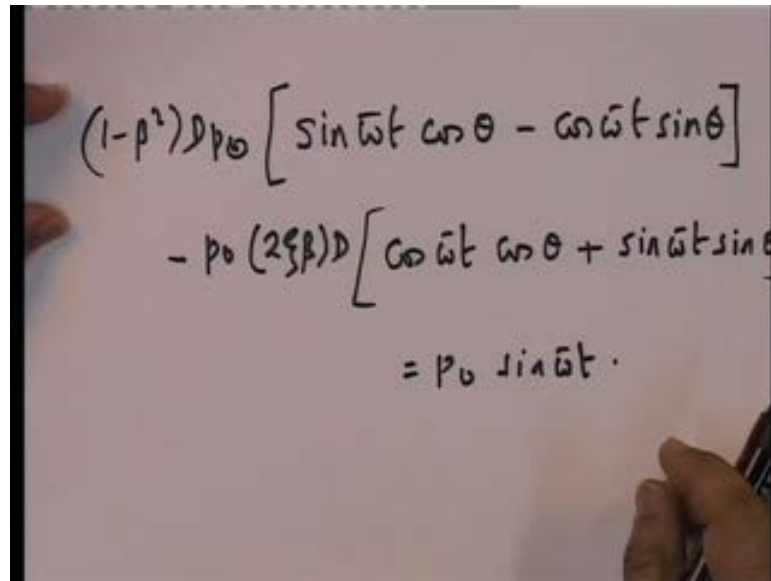 (1-β²)Dp₀ [ sin ω̄t cos θ - cos ω̄t sin θ ]
- p₀ (2ξβ)D [ cos ω̄t cos θ + sin ω̄t sin θ ]
= p₀ sin ω̄t .